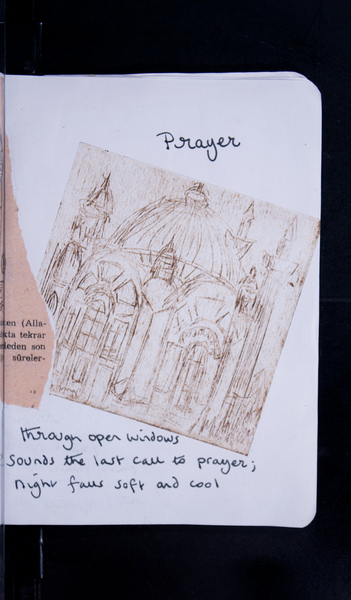 Prayer
(Alla-
tekrar
son
sûreler-
through open windows
Sounds the last call to prayer;
night falls soft and cool